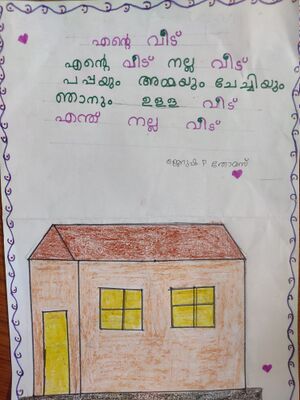 എന്റെ വീട്
എന്റെ വീട് നല്ല വീട്
പപ്പയും അമ്മയും ചേച്ചിയും
ഞാനും ഉള്ള വീട്
എന്ത് നല്ല വീട്
P തോമസ്